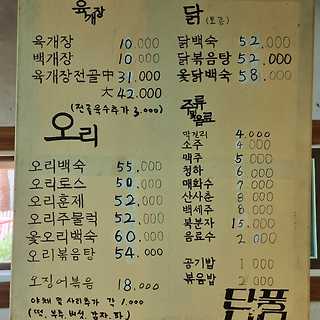 육개장
육개장 10.000
백개장 10.000
육개장전골 中 31.000
大 42.000
(전골육수추가 3.000)
오리
오리백숙 55.000
오리로스 50.000
오리훈제 52.000
오리주물럭 52.000
옻오리백숙 60.000
오리볶음탕 54.000
오징어볶음 18.000
야채 및 사리추가 각 1.000
(떡, 부추, 버섯, 감자, 파)
닭 (토종)
닭백숙 52.000
닭볶음탕 52.000
옻닭백숙 58.000
주류 및 음료
막걸리 4.000
소주 4.000
맥주 5.000
청하 6.000
매화수 7.000
산사춘 8.000
백세주 8.000
복분자 15.000
음료수 2.000
공기밥 1.000
볶음밥 2.000
단풍